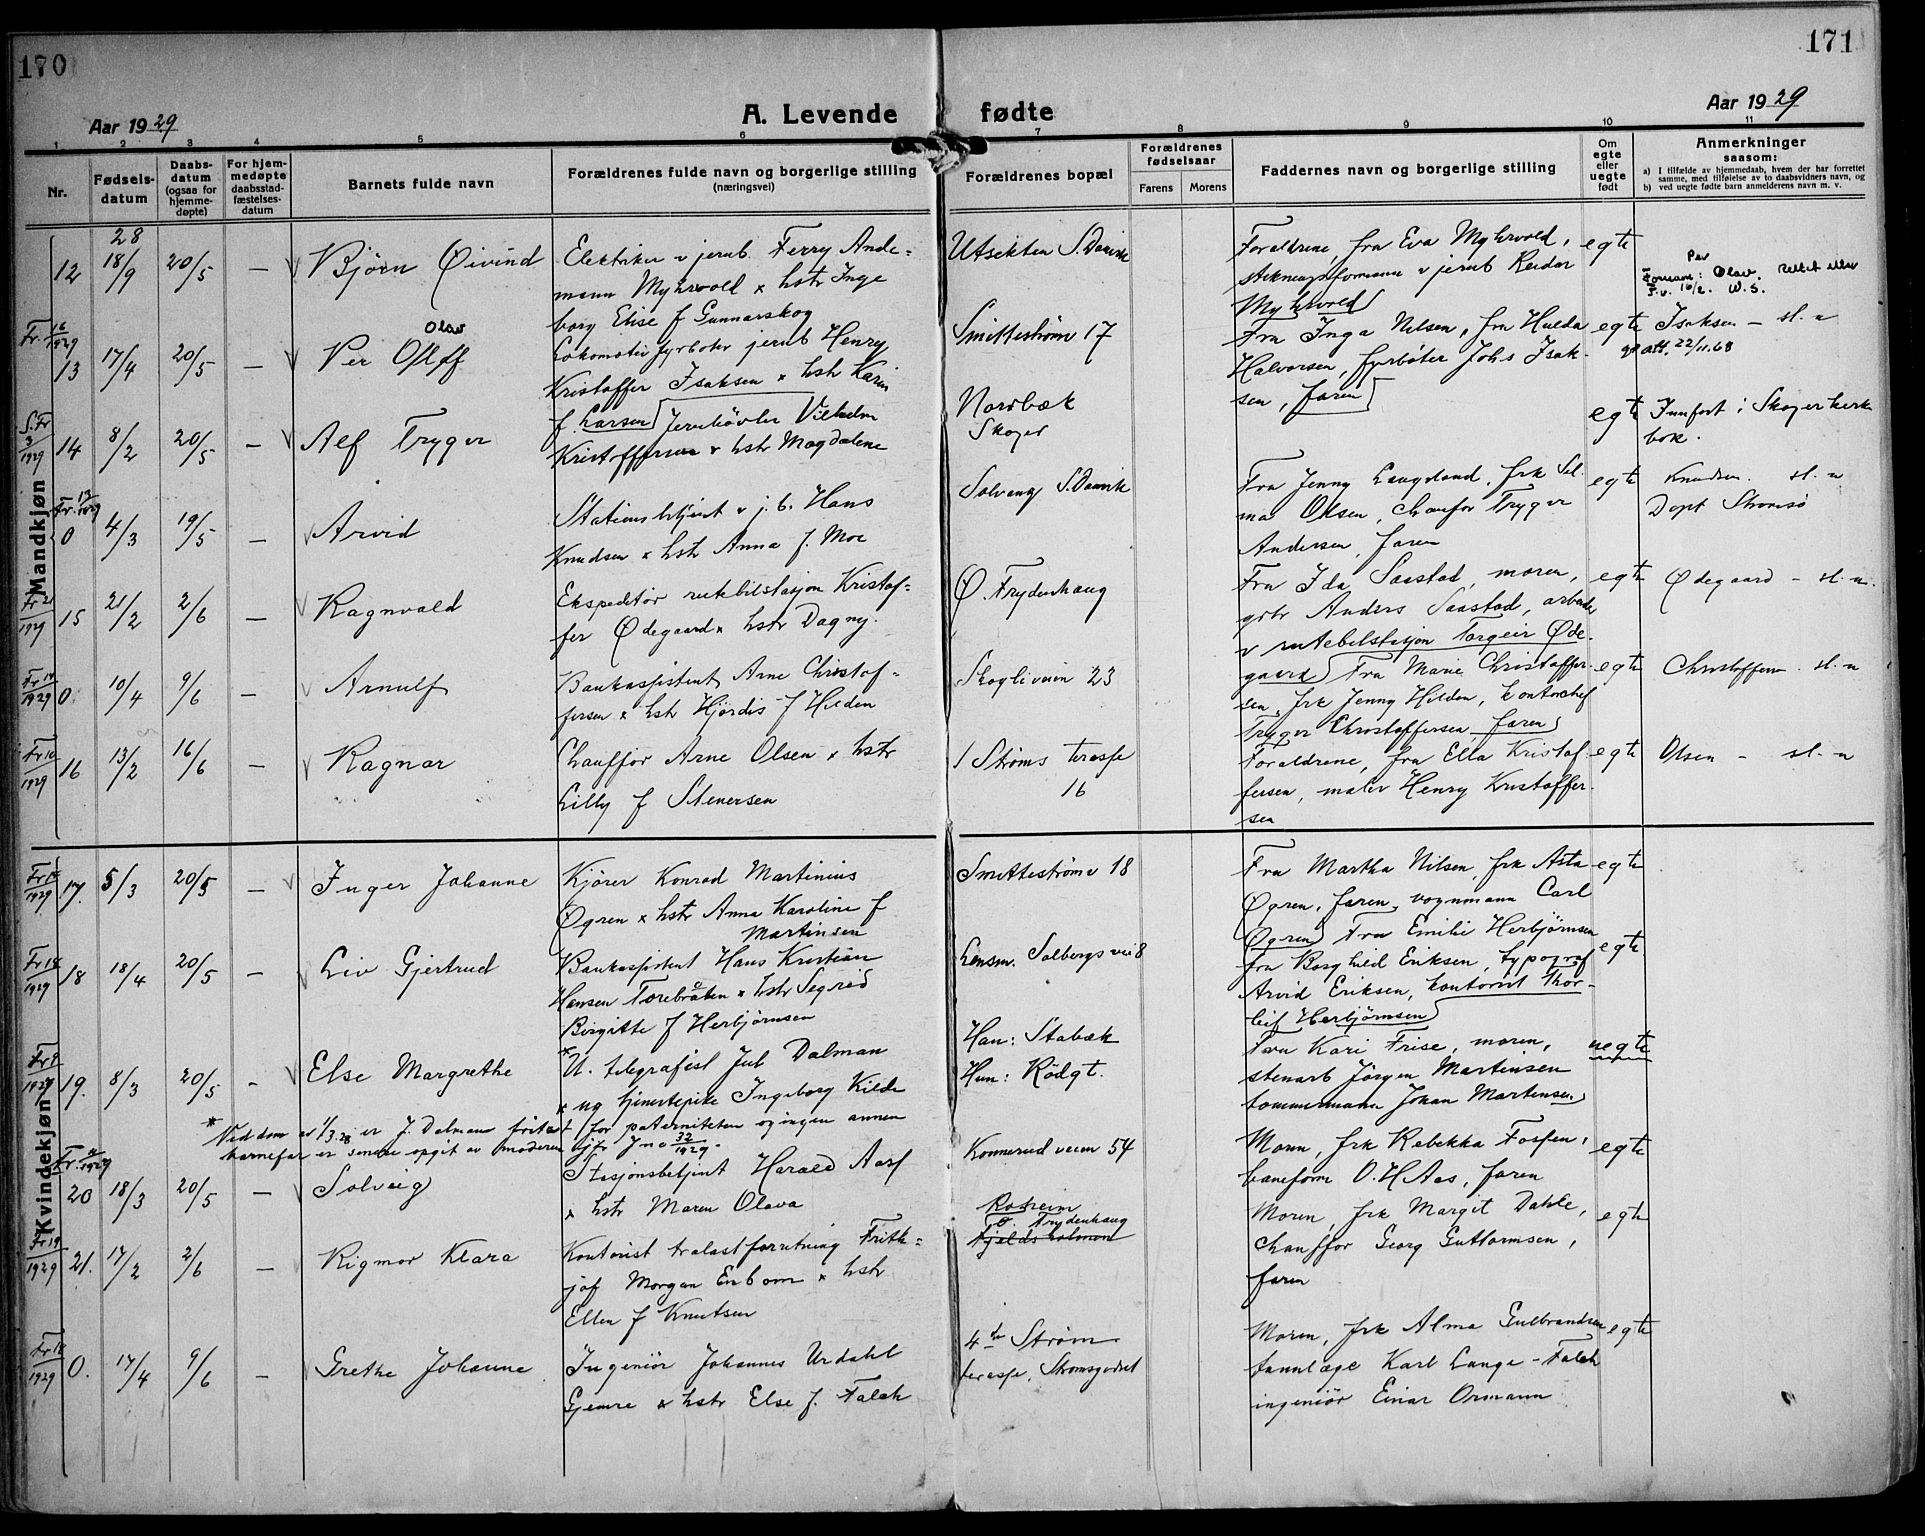 170
171
Aar 1929
A. Levende fødte
Aar 1929
1 2 3 4 5 6 7 8 9 10 11
Nr.
Fødsels-
datum
Daabs-
datum
(ogsaa for
hjemme-
døpte)
For hjem-
medøpte
daabsstad-
fæstelses-
datum
Barnets fulde navn
Forældrenes fulde navn og borgerlige stilling
(næringsvei)
Forældrenes bopæl
Forældrenes
fødselsaar
Farens Morens
Faddernes navn og borgerlige stilling
Om
egte
eller
uegte
født
Anmerkninger
saasom:
a) I tilfælde av hjemmedaab, hvem der har forrettet
samme, med tilføielse av to daabsvidners navn, og
b) ved uegte fødte barn anmelderens navn m. v.
Mandkjøn
12 28 18/9 20/5 — Bjørn Øivind
Elektriker v jernb. Ferry Ande-
mann Myhrvold x hstr Inge
borg Elise f Gunnarskog
Utsikten S. Danvik
Foraldrene, fru Eva Myhrvold,
formann v jernb Reidar
Myhrvold
egte
Per
Olav. rettet eller
16/2. W.S.
Fr. 16/1929
13 17/4 20/5 — Per Olaf
Olav
Lokomotiv fyrbøter jernb Henry
Kristoffer Isaksen x hstr Karin
f. Larsen
Smittestrøm 17
Fru Inga Nilsen, fru Hulda
Halvorsen, fyrbøter Johs Isak-
sen, faren
egte
Isaksen — sl. n
att. 22/11.68
S. Fr 3/1929
14 8/2 20/5 — Alf Trygve
Jernhøvler Vilhelm
Kristoffersen x hstr Magdalene
Nordbæk
Skoger
egte
Innført i Skoger kirke
bok.
Fr. 13/1929
0 4/3 19/5 — Arvid
Stationsbetjent v j. b. Hans
Knudsen x hstr Anna f. Moe
Solvang S. Danvik
Fru Jenny Langsland, frk Sel
ma Olsen, chaufør Trygve
Andersen, faren
egte
Knudsen. sl. n
Døpt Strømsø
Fr 21/1929
15 21/2 2/6 — Ragnvald
Ekspeditør rutebilstasjon Kristof-
fer Ødegaard x hstr Dagny.
Ø. Frydenhaug
Fru Ida Saastad, moren,
grbr Anders Saastad, arbeider
v rutebilstasjon Torgeir Øde-
gaard
egte
Ødegaard — sl. n.
Fr 14/1929
0 10/4 9/6 — Arnulf
Bankassistent Arne Christof-
fersen x hstr Hjørdis f Hilden
Skogliveien 23
Fru Marie Christoffer-
sen, frk Jenny Hilden, kontorchef
Trygve Christoffersen, faren
egte
Christoffersen. sl. n
Fr 10/1929
16 13/2 16/6 — Ragnar
Chauffør Arne Olsen x hstr
Lilly f Stenersen
1 Strøms terasse
16
Foraldrene, fru Ella Kristof
fersen, maler Henry Kristoffer-
sen
egte
Olsen — sl. n
Kvindekjøn
Fr 15/1929
17. 5/3 20/5 — Inger Johanne
Kjører Konrad Martinius
Øgren x hstr Anna Karoline f
Martinsen
Smittestrøm 18
Fru Martha Nilsen, frk Asta
Øgren, faren, vognmann Carl
Øgren
egte
Fr 18/1929
18 18/4 20/5 — Liv Gjertrud
Bankassistent Hans Kristian
Hansen Torebråten x hstr Segrid
Birgitte f Herbjørnsen
Lensm. Solbergs vei 8
Fru Emilie Herbjørnsen
fru Borghild Eriksen, typograf
Arvid Eriksen, kontorist Thor-
leif Herbjørnsen
egte
Fr 9/1929
19. 8/3 20/5 — Else Margrethe
* U. telegrafist Jul Dalman
x ug tjenestepike Ingeborg Kilde
Han: Stabæk
Hun: Rødgt.
Fru Kari Frise, moren,
stenarb Jørgen Martinsen
tømmermann Johan Martinsen
uegte
* Ved dom av 1/3.28 er J. Dalman fritat for paterniteten og ingen annen
barnefar er senere opgit av moderen cfr Jno 32/1929.
20 18/3 20/5 — Solveig
Stasjonsbetjent Harald Aas
x hstr Maren Olava
Konnerudveien 54
Moren, frk Rebekka Fossen,
baneform O. H Aas, faren
egte
Fr 19/1929
21. 17/2 2/6 — Rigmor Klara
Kontorist trælastforretning Frith-
jof Morgan Enbom x hstr
Ellen f Knutsen
Roheim
Ø. Frydenhaug
Fjeldsholmen
Moren, frk Margit Dahle,
Chauffør Georg Guttormsen,
faren
egte
0. 17/4 9/6 — Grethe Johanne
Ingeniør Johannes Urdahl
Gjemre x hstr Else f. Falch
4de Strøm
terasse, Strømsgodset
Moren, frk Alma Gulbrandsen
tannlæge Karl Lange-Falch
ingeniør Einar Ormann
egte